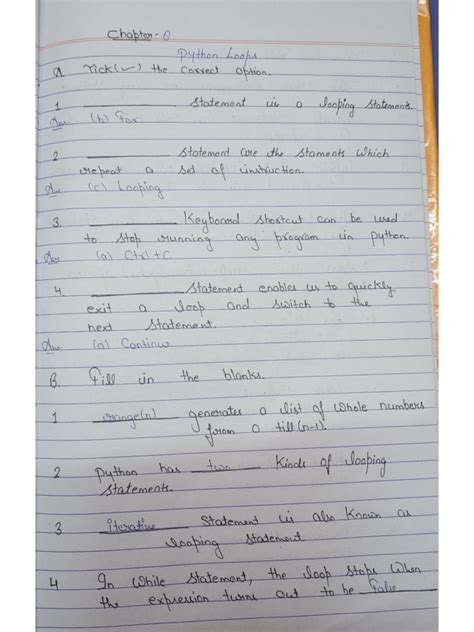 Chapter - 0
Python Loops
Q Tick (✓) the correct option.
1 ________ statement is a looping statements.
Ans (b) For
2 ________ statement are the staments which
repeat a set of instruction.
Ans (c) Looping
3. ________ Keyboard shortcut can be used
to stop running any program in python.
Ans (a) Ctrl + C
4. ________ statement enables us to quickly
exit a loop and switch to the
next statement.
Ans (a) Continue
B. Fill in the blanks.
1 range(n) generates a list of whole numbers
from 0 till (n-1).
2 Python has two kinds of looping
statements.
3 iterative statement is also known as
looping statement.
4 In While statement, the loop stops when
the expression turns out to be False